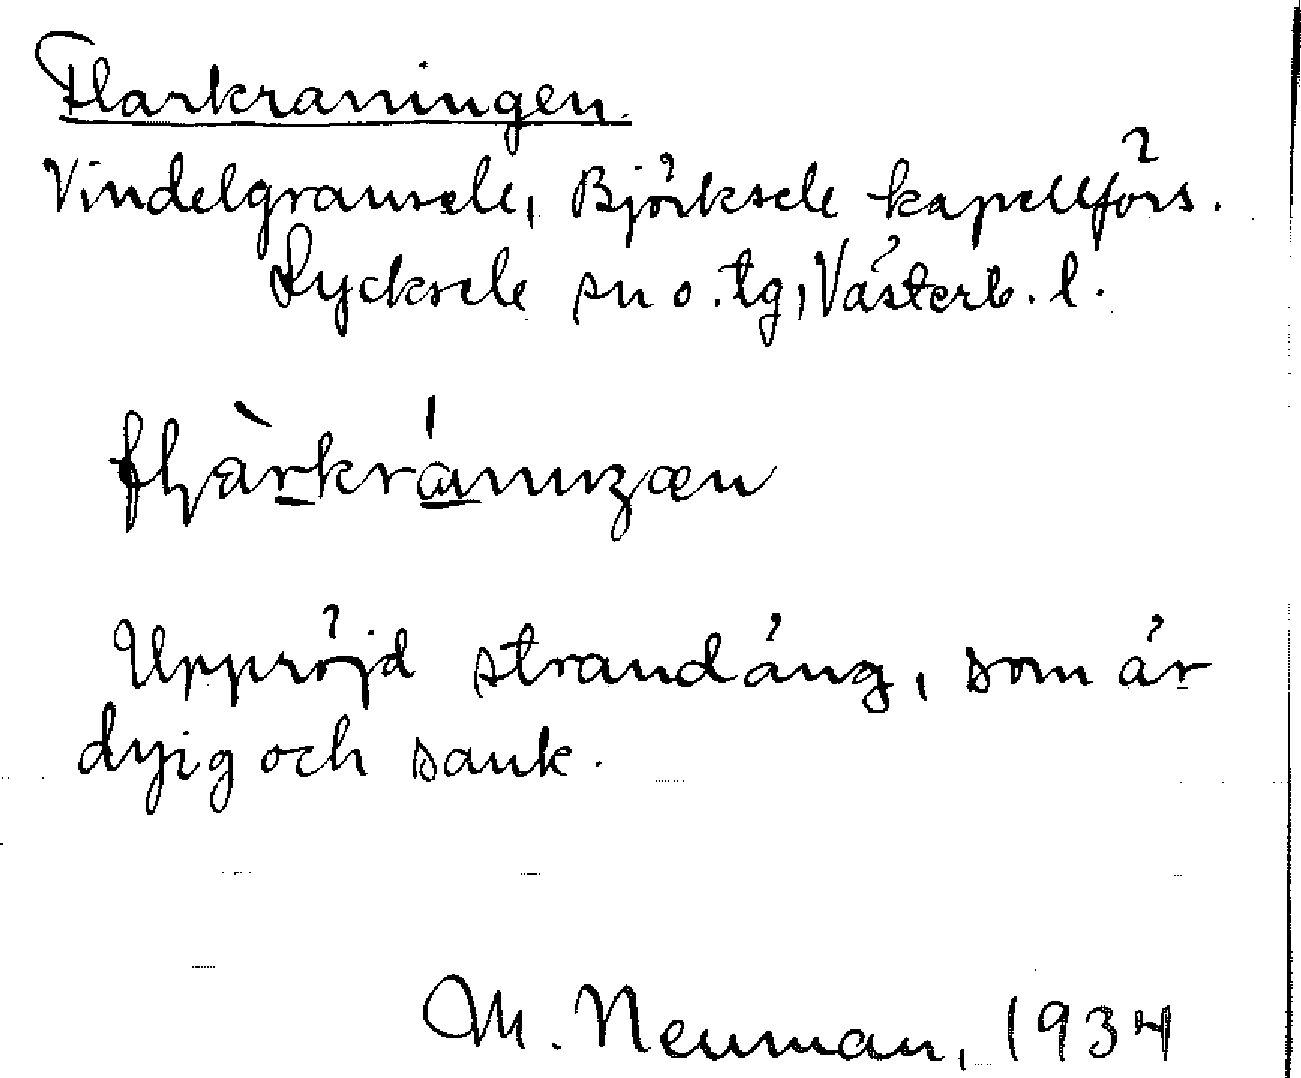 Flarkraningen.
Vindelgransele, Björksele kapellförs.
Lycksele sn o. tg, Västerb. l.
Uppröjd strandäng, som är
dyig och sank.
M. Neuman, 1934